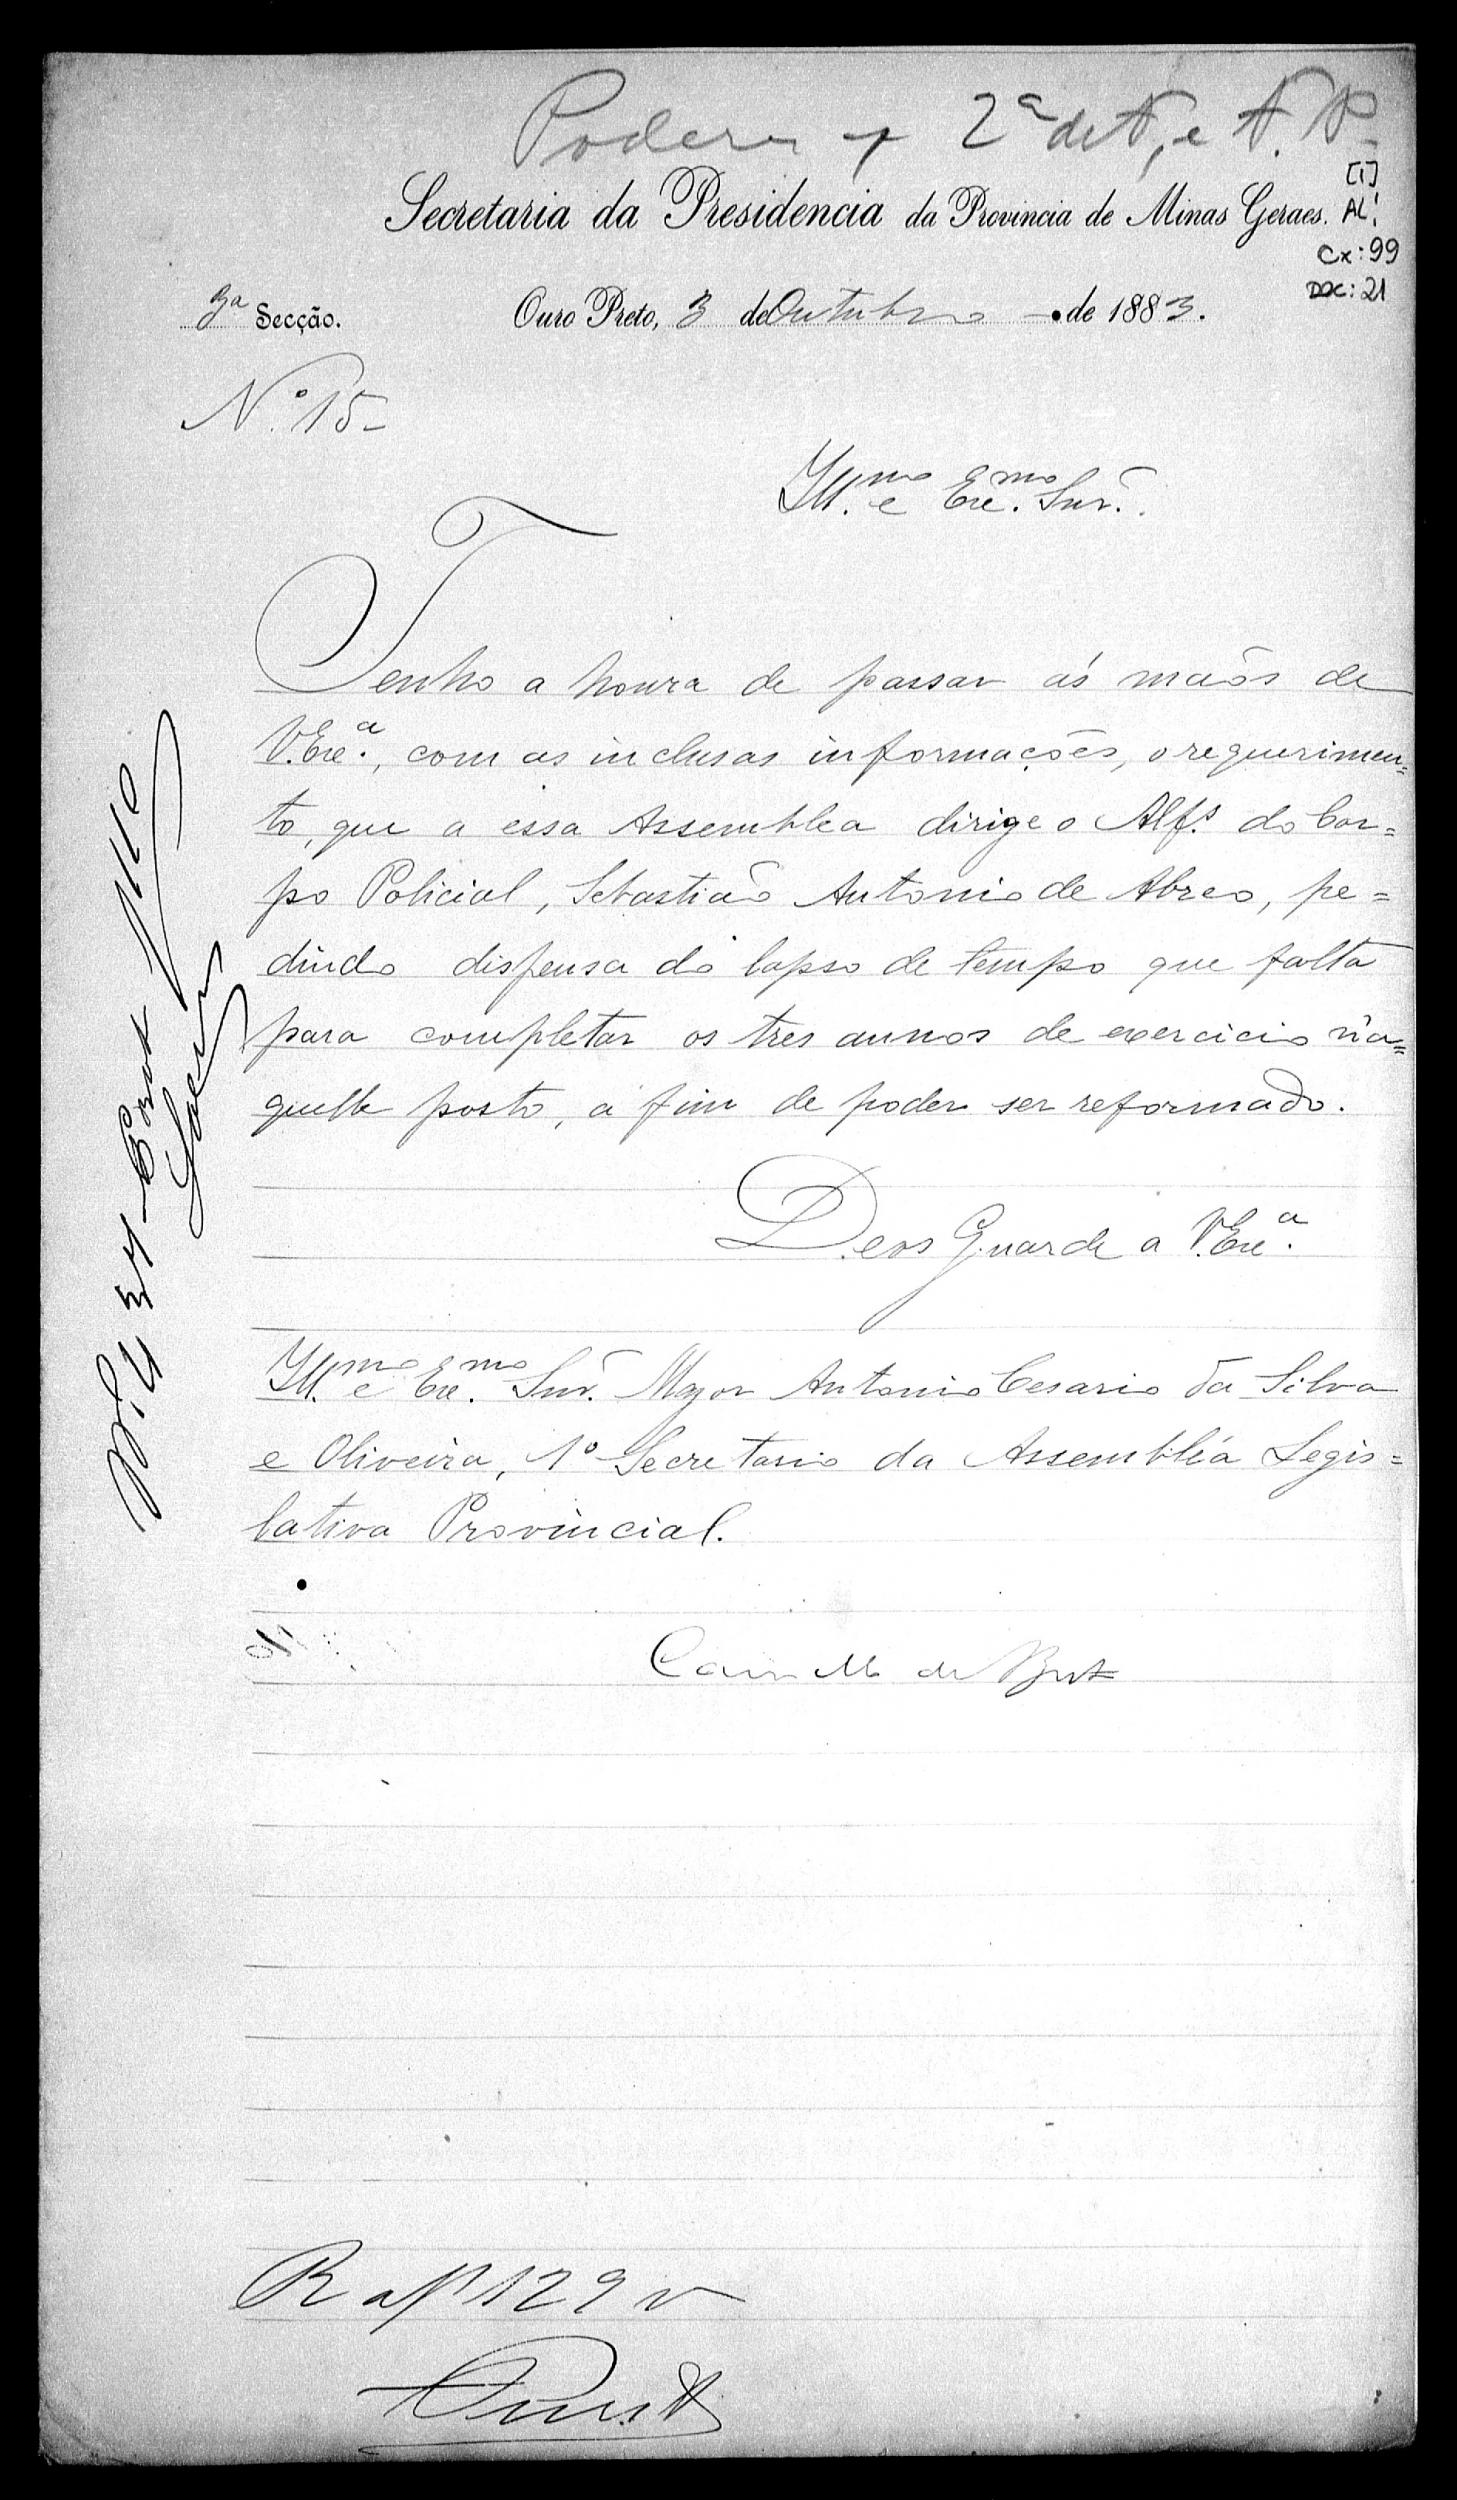 Poderes 2ª de
[1]
Secretaria da Presidencia da Provincia de Minas Geraes. AL!
Cx: 99
DOC: 21
3ª Secção. Ouro Preto, 3 de Outubro de 1883.
N.º 15-
Ill.mo e Exc.mo Snr.
Tenho a honra de passar ás mãos de
V. Exc.ª, com as inclusas informações, o requerimen=
to, que a essa Assemblea dirige o Alf.s do Cor=
po Policial, Sebastião Antonio de Abreo, pe=
dindo dispensa do lapso de tempo que falta
para completar os tres annos de exercicio n'a=
quelle posto, a fim de poder ser reformado.
Deos Guarde a V. Exc.ª
Ill.mo e Exc.mo Snr. Major Antonio Cesario da Silva
e Oliveira, 1º Secretario da Assembléa Legis=
lativa Provincial.
R a f 129 v